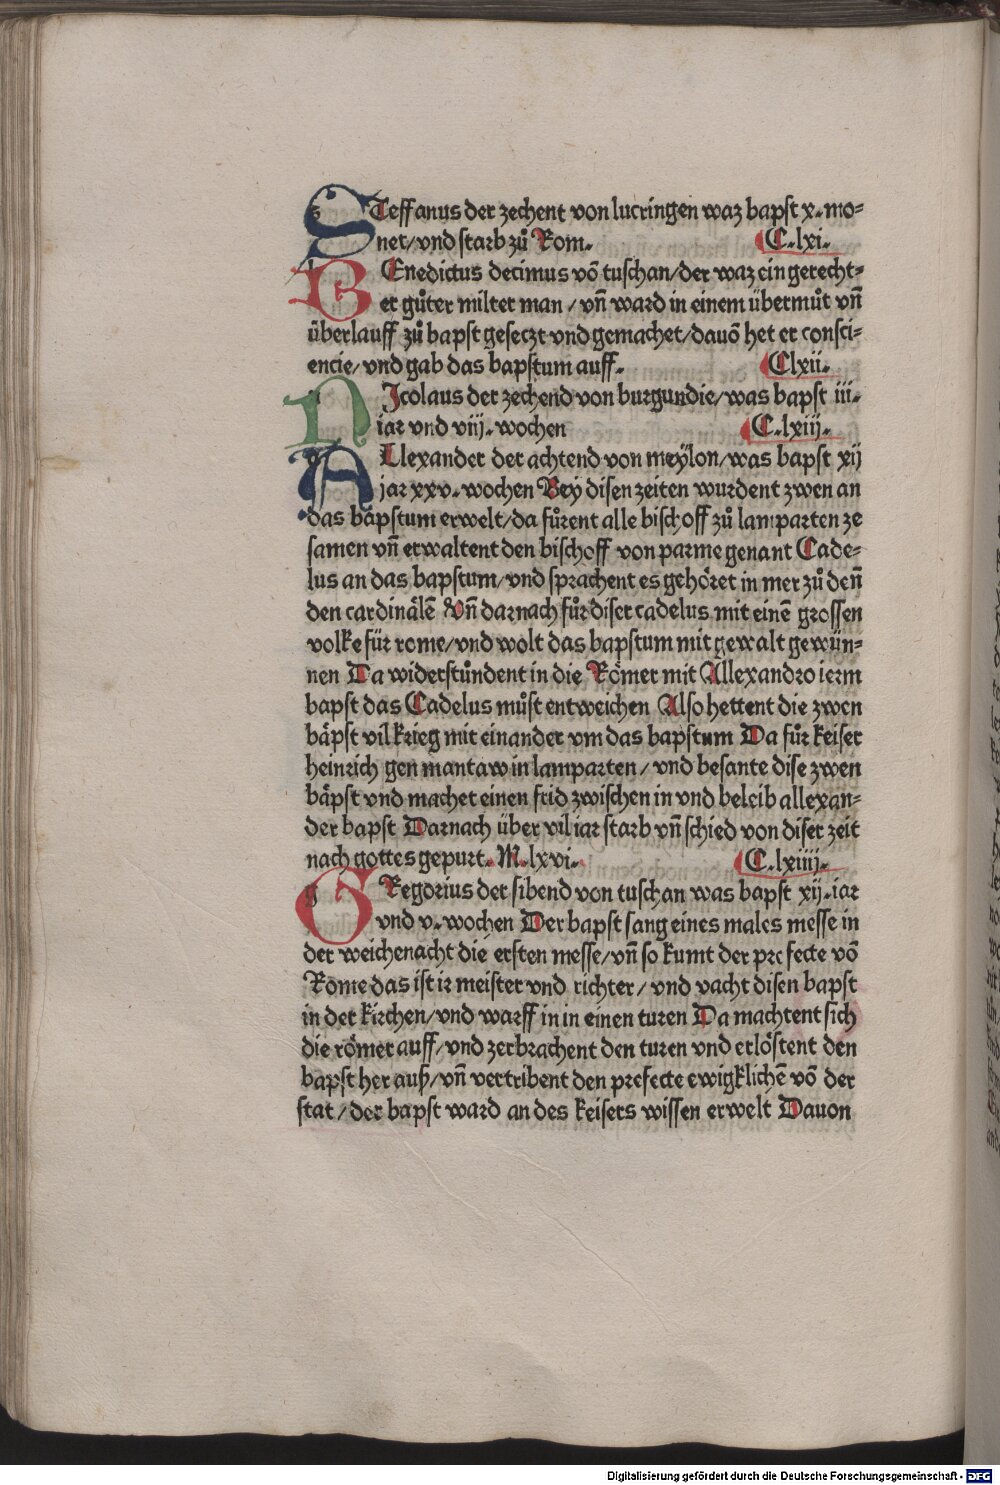 STeffanus der zechent von lucringen waz bapst x. mo⸗
net/vnd starb zuͦ Rom. C.lxi.
BEnedictus decimus võ tuschan/der waz ein gerecht⸗
er guͦter milter man/vñ ward in einem übermuͦt vñ
überlauff zuͦ bapst geseczt vnd gemachet/dauõ het er consci⸗
encie/vnd gab das bapstum auff. Clxii.
NJcolaus der zechend von burgundie/was bapst iii.
iar vnd viij. wochen C.lxiij.
ALlexander der achtend von meylon/was bapst xij
jar xxv. wochen Bey disen zeiten wurdent zwen an
das bäpstum erwelt/da fuͦrent alle bischoff zuͦ lamparten ze
samen vñ erwaltent den bischoff von parme genant Cade⸗
lus an das bapstum/vnd sprachent es gehöret in mer zuͦ deñ
den cardinälẽ Vñ darnach fuͦr diser cadelus mit einẽ grossen
volke für rome/vnd wolt das bapstum mit gewalt gewün⸗
nen Da widerstuͦndent in die Römer mit Allexandro ierm
bapst das Cadelus muͦst entweichen Also hettent die zwen
bäpst vil krieg mit einander vm das bapstum Da fuͦr keiser
heinrich gen mantaw in lamparten/vnd besante dise zwen
bäpst vnd machet einen frid zwischen in vnd beleib allexan⸗
der bapst Darnach über vil iar starb vñ schied von diser zeit
nach gottes gepurt. M.lxvi. C.lxiiij.
GRegorius der sibend von tuschan was bapst xij. iar
vnd v. wochen Der bapst sang eines males messe in
der weichenacht die ersten messe/vñ so kumt der prefecte võ
Rome das ist ir meister vnd richter/vnd vacht disen bapst
in der kirchen/vnd warff in in einen turen Da machtent sich
die römer auff/vnd zerbrachent den turen vnd erlöstent den
bapst her auß/vñ vertribent den prefecte ewigklichẽ võ der
stat/der bapst ward an des keisers wissen erwelt Dauon
Digitalisierung gefördert durch die Deutsche Forschungsgemeinschaft - DFG